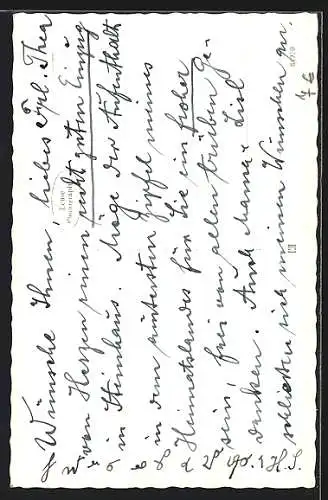 Wünsche Ihnen, liebes Frl. Thea
von Herzen einen recht guten Einzug
in Steinhaus. Möge der Aufenthalt
in dem äußersten Zipfel meines
Heimatlandes für Sie ein froher
sein, frei von allen trüben Ge-
danken. Auch Mama &
Lisl
schließen sich meinen Wünschen an.
Echte
Photographie
H. S.